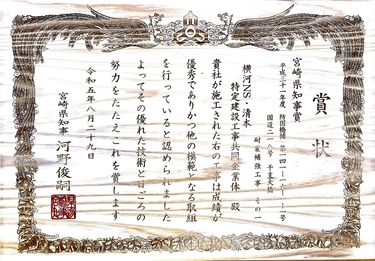 賞状
宮崎県知事賞
平成三十一年度 防国橋補 第一四一-一六-一号
国道二一八号 干支大橋
耐震補強工事 その一
横河NS・清本
特定建設工事共同企業体 殿
貴社が施工された右の工事は成績が
優秀でありかつ他の模範となる取組
を行っていると認められました
よってその優れた技術と日ごろの
努力をたたえこれを賞します
令和五年八月二十九日
宮崎県知事 河野俊嗣